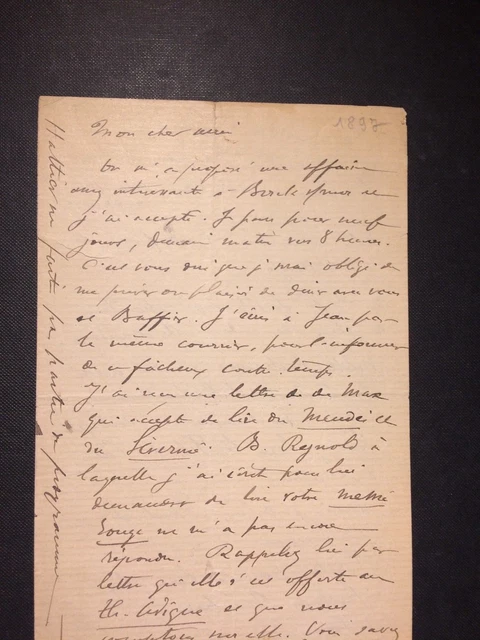 1897
Mon cher ami
On m'a proposé une affaire
assez intéressante à
j'ai accepté. Je pars pour neuf
jours, demain matin vers 8 heures.
C'est vous dire que je suis obligé de
me priver du plaisir de dîner avec vous
et Baffier. J'écris à Jean par
le même courrier, pour l'informer
de ce fâcheux contre-temps.
J'ai reçu une lettre de Max
qui accepte de lire du
du B. Reynold à
laquelle j'ai écrit pour lui
demander de lire votre
Rouge ne m'a pas encore
répondu. Rappelez lui par
lettre qu'elle s'est offerte au
th. et que nous
comptons sur elle. Vous savez
ne fait pas partie du programme